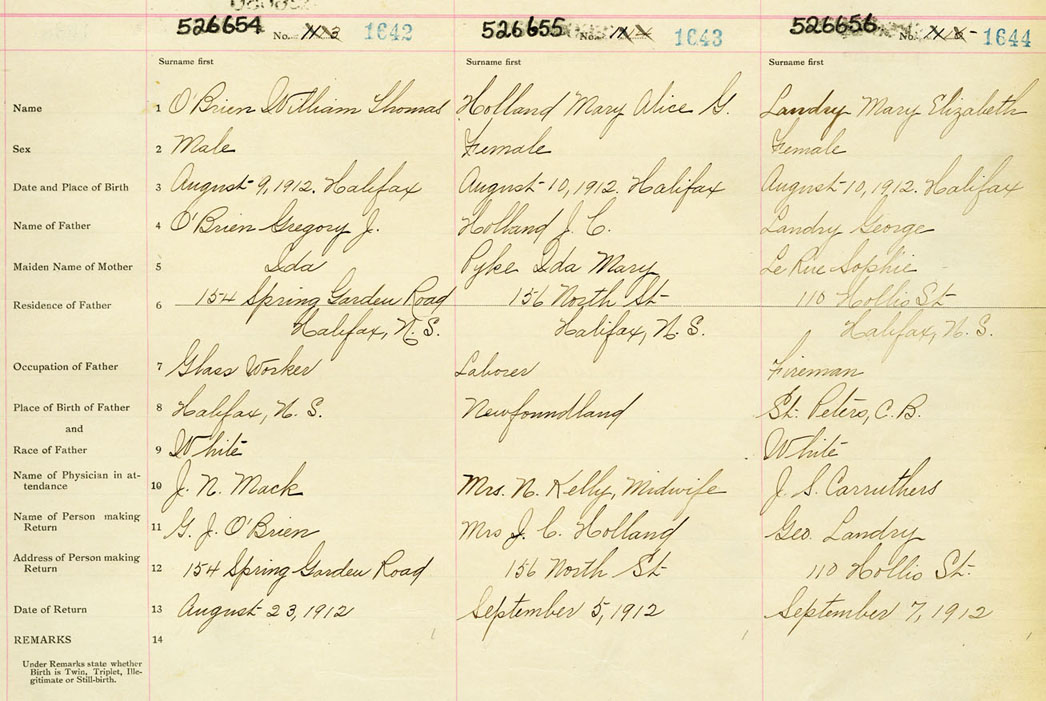 526654 No. 1642 526655 No. 1643 526656 No. 1644
Surname first Surname first Surname first
Name 1 O'Brien William Thomas Holland Mary Alice G. Landry Mary Elizabeth
Sex 2 Male Female Female
Date and Place of Birth 3 August 9, 1912. Halifax August 10, 1912. Halifax August 10, 1912. Halifax
Name of Father 4 O'Brien Gregory J. Holland J. C. Landry George
Maiden Name of Mother 5 Ida Pyke Ida Mary Le Rue Sophie
Residence of Father 6 154 Spring Garden Road 156 North St 110 Hollis St
Halifax, N.S. Halifax, N.S. Halifax, N.S.
Occupation of Father 7 Glass Worker Laborer Fireman
Place of Birth of Father 8 Halifax, N.S. Newfoundland St. Peters, C.B.
and
Race of Father 9 White White
Name of Physician in at-
tendance 10 J. N. Mack Mrs. N. Kelly, Midwife J. S. Carruthers
Name of Person making
Return 11 G. J. O'Brien Mrs J. C. Holland Geo. Landry
Address of Person making
Return 12 154 Spring Garden Road 156 North St 110 Hollis St.
Date of Return 13 August 23, 1912 September 5, 1912 September 7, 1912
REMARKS 14
Under Remarks state whether
Birth is Twin, Triplet, Ille-
gitimate or Still-birth.